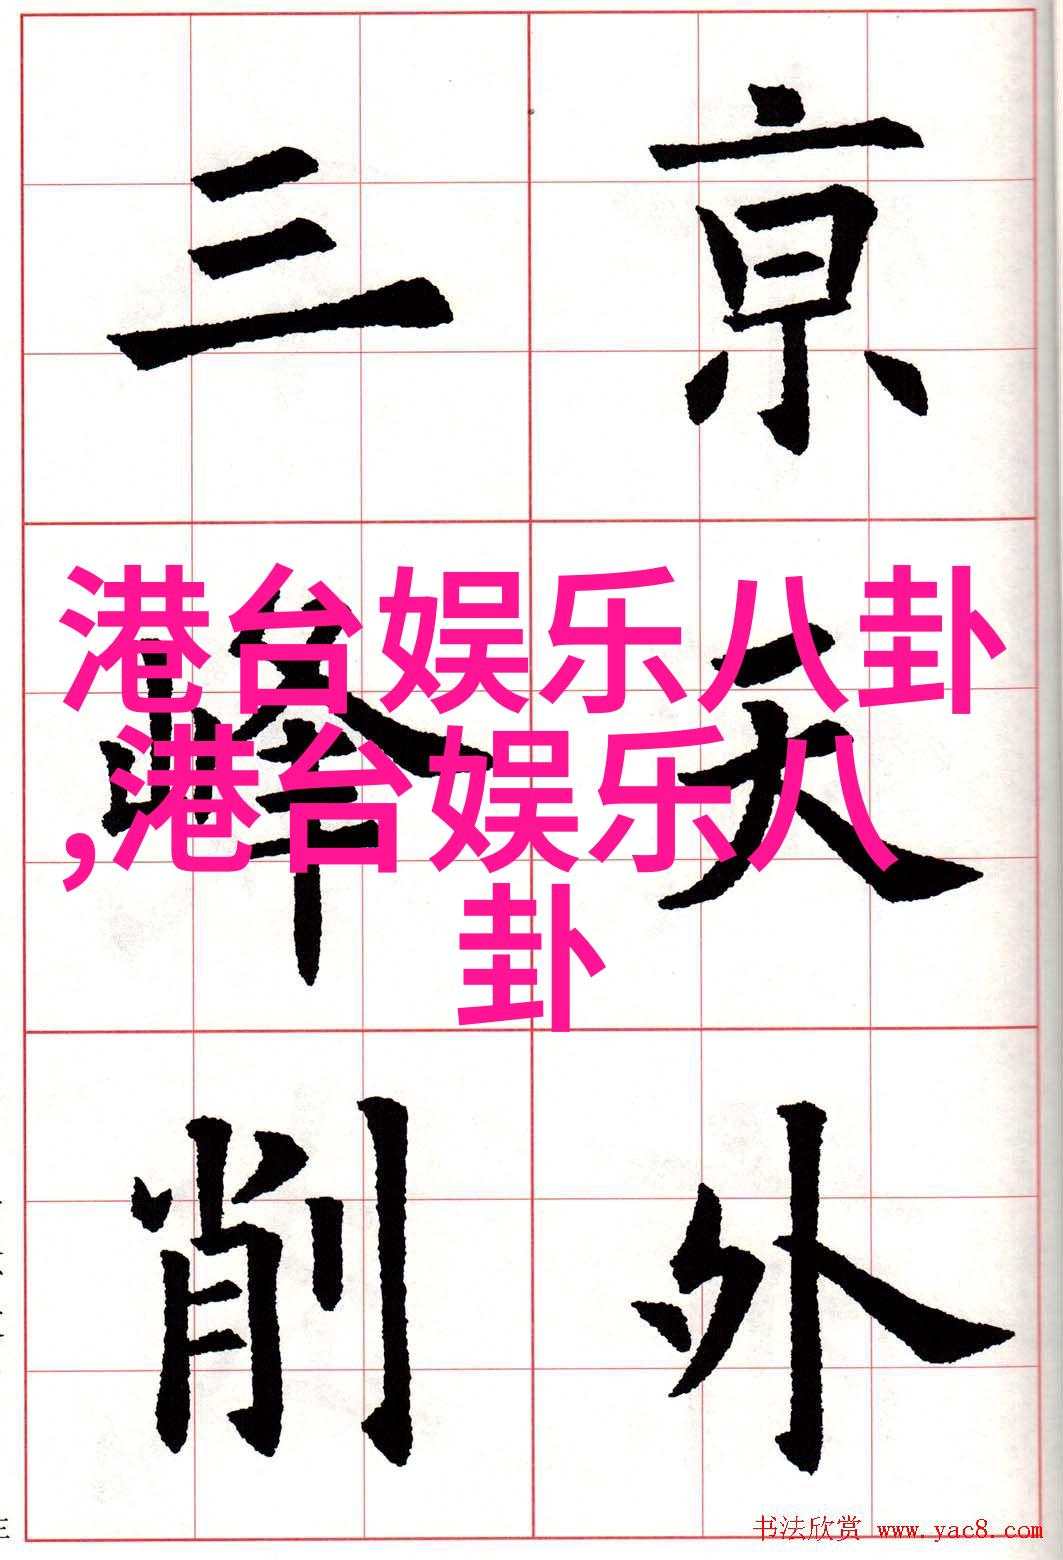 亰天外
三峰削
港台娱乐八卦
,港台娱乐八
卦
书法欣赏 www.yac8.com